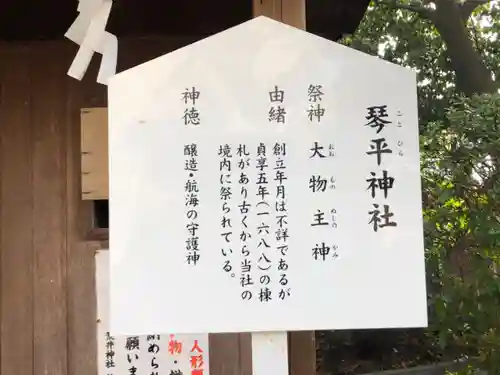 琴平神社
こと ひら
祭神
大物主神
おお もの ぬし かみ
由緒
創立年月は不詳であるが
貞享五年(一六八八)の棟
札があり古くから当社の
境内に祭られている。
神徳
醸造・航海の守護神
人形
物・
められ
願いま
井神社